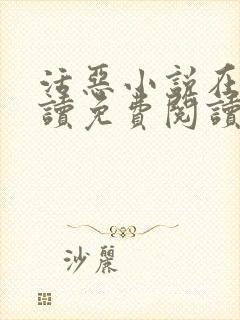 活惡小說在
讀免費閱讀
沙麗